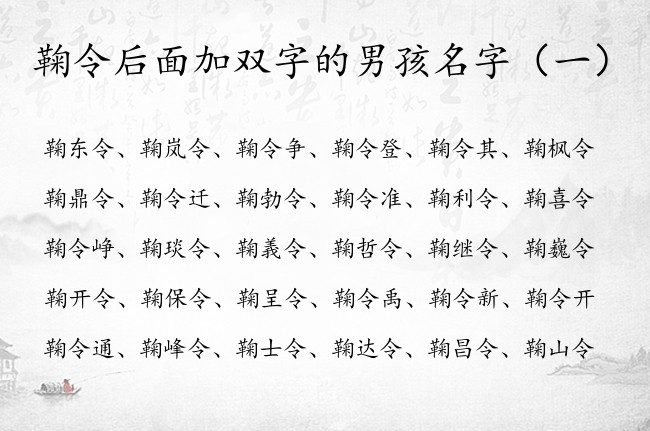 鞠令后面加双字的男孩名字（一）
鞠东令、鞠岚令、鞠令争、鞠令登、鞠令其、鞠枫令
鞠鼎令、鞠令迁、鞠勃令、鞠令准、鞠利令、鞠喜令
鞠令峥、鞠琰令、鞠義令、鞠哲令、鞠继令、鞠巍令
鞠开令、鞠保令、鞠呈令、鞠令禹、鞠令新、鞠令开
鞠令通、鞠峰令、鞠士令、鞠达令、鞠昌令、鞠山令